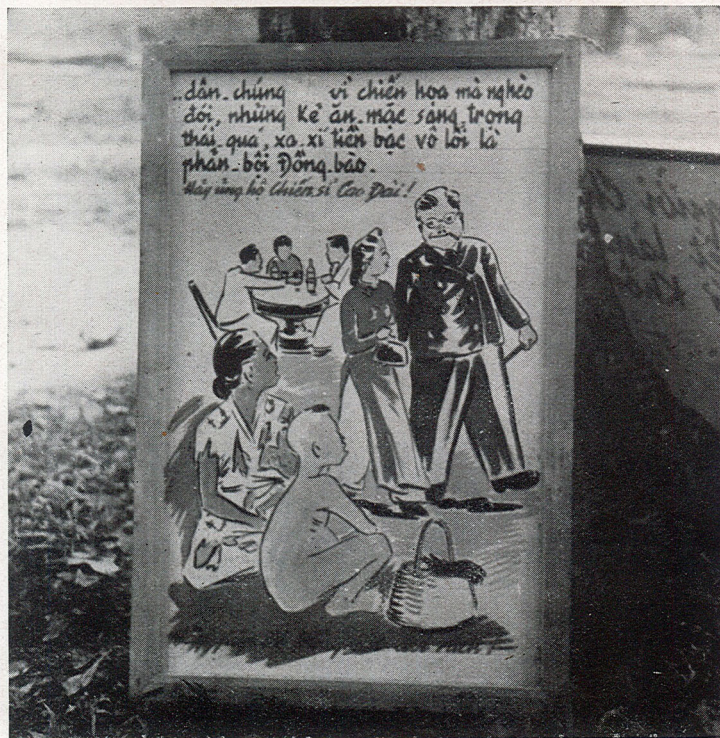 ..dân-chúng vì chiến họa mà nghèo
đói, những kẻ ăn-mặc sang-trọng
thái-quá, xa-xỉ tiền bạc vô lối là
phản-bội Đồng-bào.
Hãy ủng hộ Chiến sĩ Cao Đài!